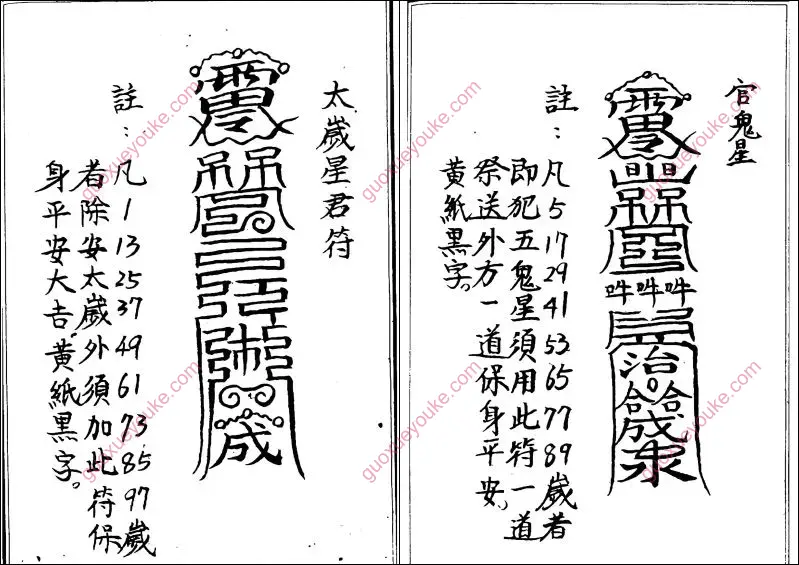 官鬼星
吽吽吽
治
合合
成
註：
凡5 17 29 41 53 65 77 89歲者
即犯五鬼星須用此符一道
祭送外方一道保身平安。
黃紙黑字。
太歲星君符
成
註：
凡1 13 25 37 49 61 73 85 97歲
者除安太歲外須加此符保
身平安大吉。黃紙黑字。
guoxueyouke.com
guoxueyouke.com
guoxueyouke.com
guoxueyouke.com
guoxueyouke.com
guoxueyouke.com